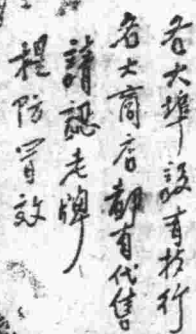 各大埠設有批行
各大商店都有代售
請認老牌
提防冒效